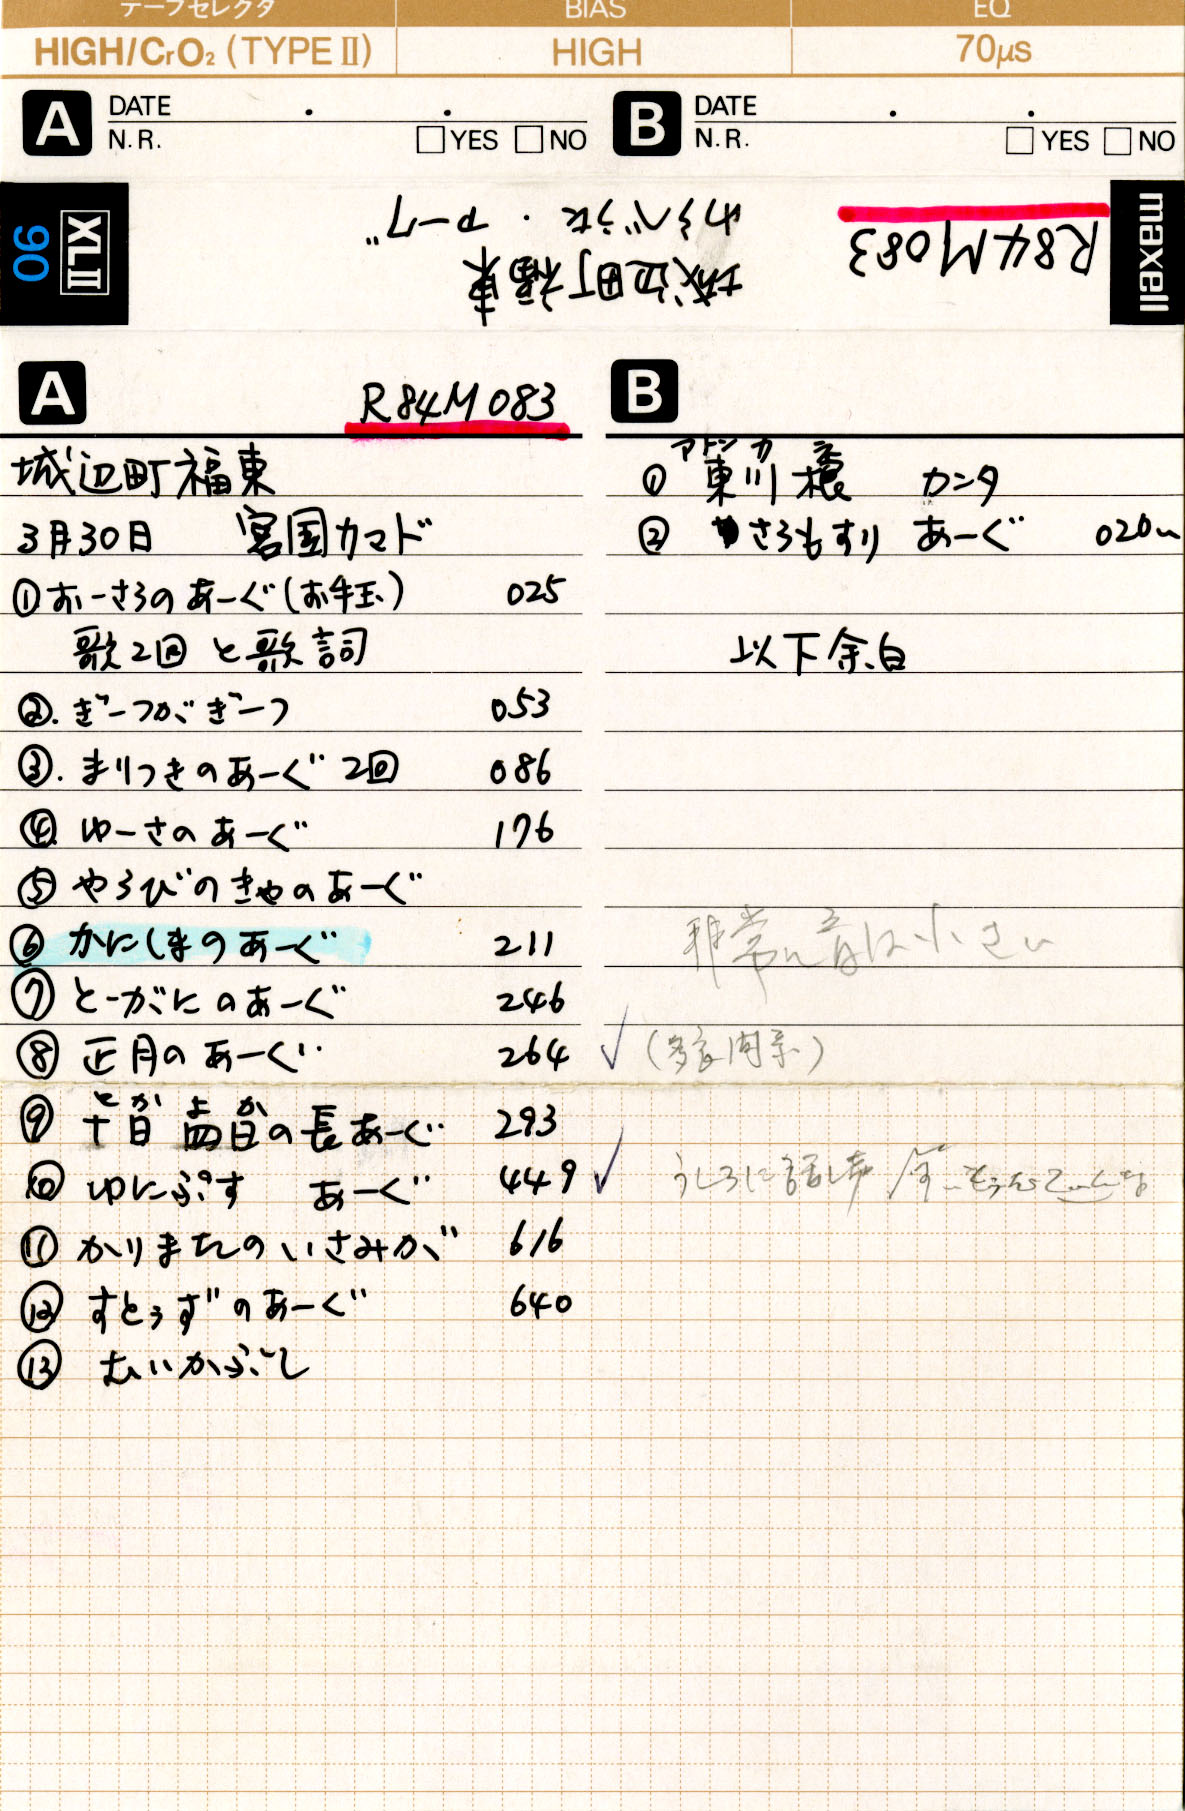 テープセレクタ BIAS EQ
HIGH/CrO₂ (TYPE II) HIGH 70μs
A DATE . .
N.R. YES NO
B DATE . .
N.R. YES NO
maxell
R84M083
城辺町福東
わらべうた・アーグ
XLII 90
A R84M083
城辺町福東
3月30日 宮国カマド
①おーさろのあーぐ(お手玉) 025
歌2回と歌詞
②. ぎーつがぎーつ 053
③. まりつきのあーぐ 2回 086
④ ゆーさのあーぐ 176
⑤ やらびのきやのあーぐ
⑥ かにしまのあーぐ 211
⑦ とーがにのあーぐ 246
⑧ 正月のあーぐ 264
⑨ 十日四日の長あーぐ 293
とか よか
⑩ ゆにぷす あーぐ 449
⑪ かりまたのいさみが 616
⑫ すとぅずのあーぐ 640
⑬ むいかぶし
B
アトンカ
① 東川 カンタ
② さらもすり あーぐ 020
以下余白
非常に音は小さい
✓
✓ うしろに話し声